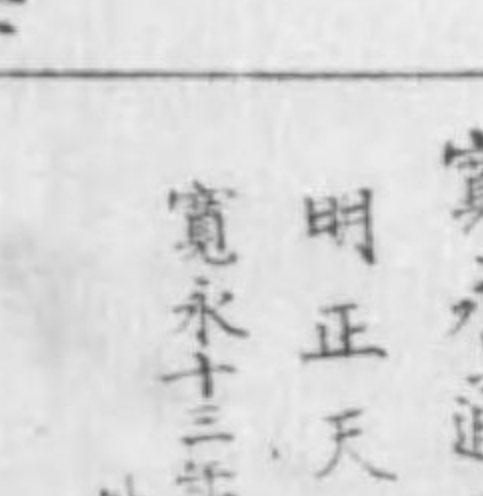 寛永通
明正天
寛永十三年